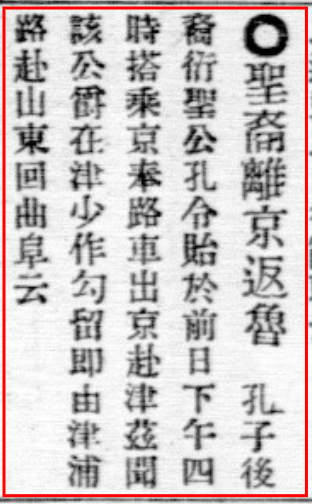 〇聖裔離京返魯　孔子後
裔衍聖公孔令貽於前日下午四
時搭乘京奉路車出京赴津茲聞
該公爵在津少作勾留即由津浦
路赴山東回曲阜云